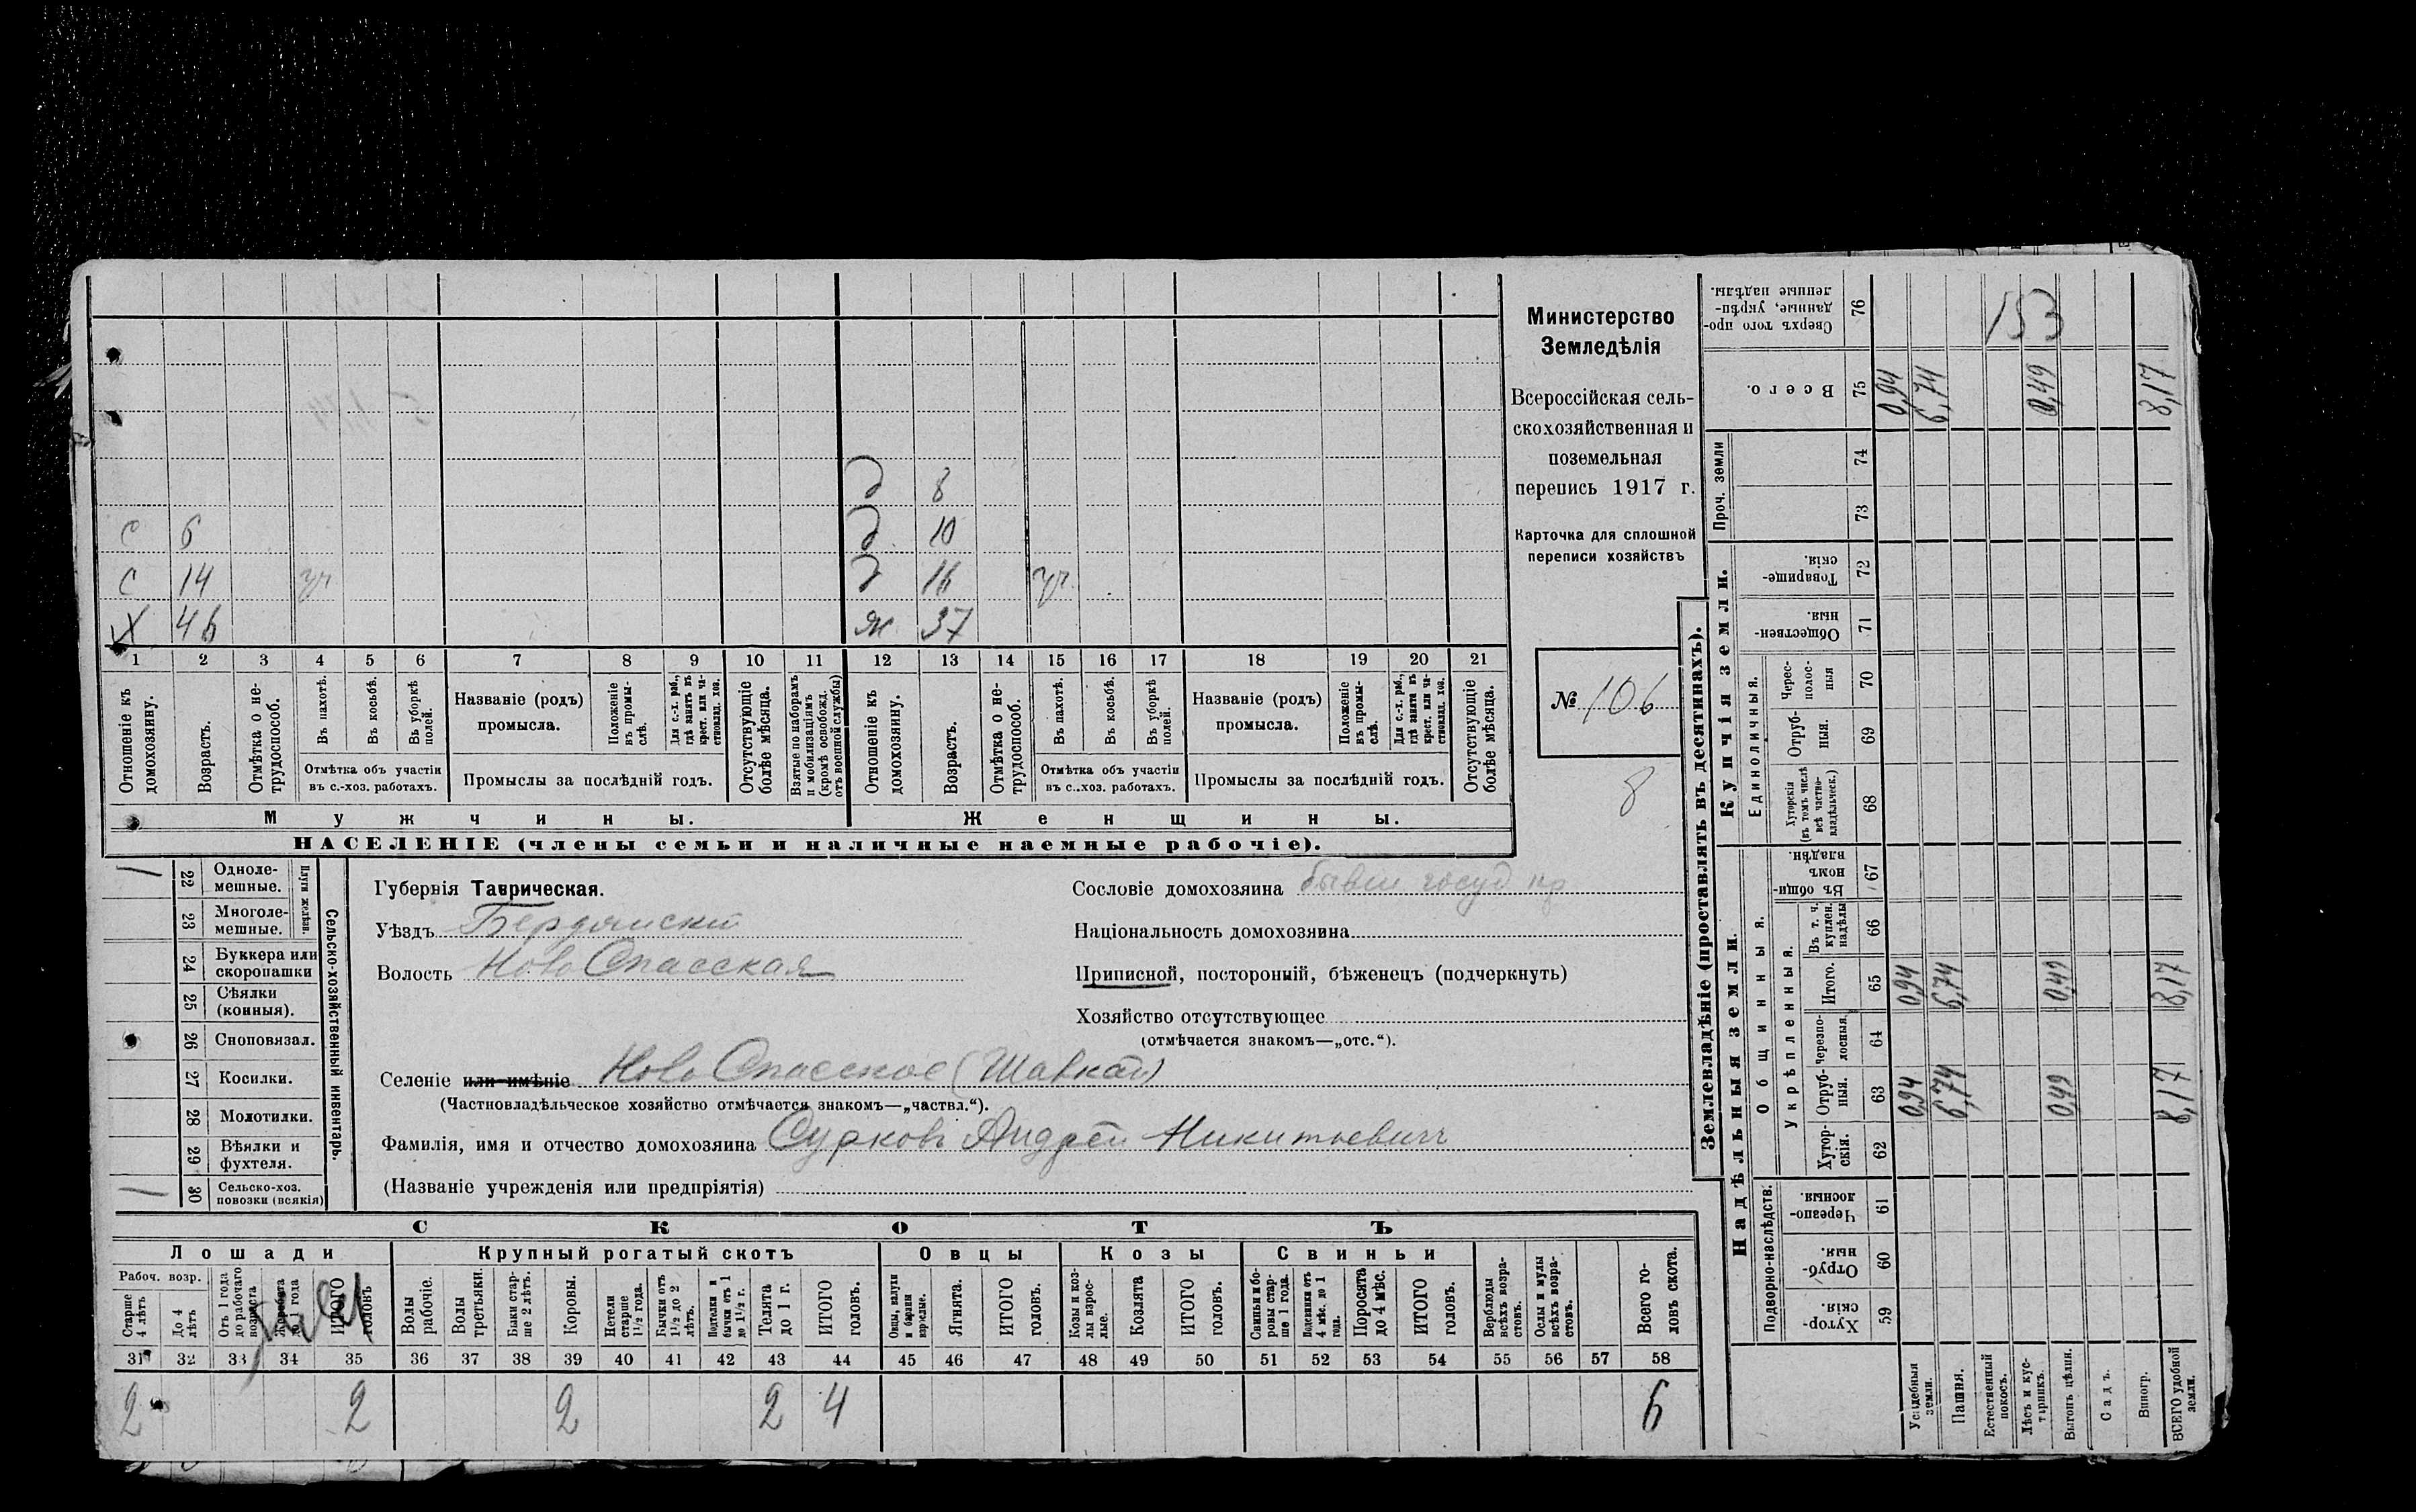 Министерство
Земледѣлія
Всероссійская сель-
скохозяйственная и
поземельная
перепись 1917 г.
Карточка для сплошной
переписи хозяйствъ
№ 106
8
д 8
с 6 д 10
с 14 уч д 16 уч.
х 46 ж. 37
1 2 3 4 5 6 7 8 9 10 11 12 13 14 15 16 17 18 19 20 21
Отношеніе къ домохозяину.
Возрастъ.
Отмѣтка о не-трудоспособ.
Въ пахотѣ.
Въ косьбѣ.
Въ уборкѣ полей.
Отмѣтка объ участіи
въ с.-хоз. работахъ.
Названіе (родъ)
промысла.
Положеніе въ промы-слѣ.
Для с.-х. раб., гдѣ занятъ въ крест. или ча-стновлад. хоз.
Промыслы за послѣдній годъ.
Отсутствующіе болѣе мѣсяца.
Взятые по наборамъ и мобилизаціямъ (кромѣ освобожд. отъ военной службы)
Отношеніе къ домохозяину.
Возрастъ.
Отмѣтка о не-трудоспособ.
Въ пахотѣ.
Въ косьбѣ.
Въ уборкѣ полей.
Отмѣтка объ участіи
въ с.-хоз. работахъ.
Названіе (родъ)
промысла.
Положеніе въ промы-слѣ.
Для с.-х. раб., гдѣ занята въ крест. или ча-стновлад. хоз.
Промыслы за послѣдній годъ.
Отсутствующіе болѣе мѣсяца.
Мужчины. Женщины.
НАСЕЛЕНІЕ (члены семьи и наличные наемные рабочіе).
Сельско-хозяйственный инвентарь.
Плуги желѣзн.
22 Одноле-мешные.
23 Многоле-мешные.
24 Буккера или скоропашки
25 Сѣялки (конныя).
26 Сноповязал.
27 Косилки.
28 Молотилки.
29 Вѣялки и фухтеля.
30 Сельско-хоз. повозки (всякія)
Губернія Таврическая.
Уѣздъ Бердянский
Волость Ново Спасская
Селеніе или имѣніе Ново Спасское (Шавкай)
(Частновладѣльческое хозяйство отмѣчается знакомъ—„частвл.“).
Фамилія, имя и отчество домохозяина Сурковъ Андрей Никитьевичъ
(Названіе учрежденія или предпріятія)
Сословіе домохозяина бывш госуд кр
Національность домохозяина
Приписной, посторонній, бѣженецъ (подчеркнуть)
Хозяйство отсутствующее
(отмѣчается знакомъ—„отс.“).
СКОТЪ
Лошади Крупный рогатый скотъ Овцы Козы Свиньи
Рабоч. возр.
Старше 4 лѣтъ
До 4 лѣтъ
Отъ 1 года до рабочаго возраста
Жеребята до 1 года
ИТОГО головъ
Волы рабочіе.
Волы третьяки.
Быки стар-ше 2 лѣтъ.
Коровы.
Нетели старше 1½ года.
Бычки отъ 1½ до 2 лѣтъ.
Подтелки и бычки отъ 1 до 1½ г.
Телята до 1 г.
ИТОГО головъ.
Овцы, валухи и бараны взрослые.
Ягнята.
ИТОГО головъ.
Козы и коз-лы взрос-лые.
Козлята
ИТОГО головъ.
Свиньи и бо-ровы стар-ше 1 года.
Подсвинки отъ 4 мѣс. до 1 года.
Поросята до 4 мѣс.
ИТОГО головъ.
Верблюды всѣхъ возра-стовъ.
Ослы и мулы всѣхъ возра-стовъ.
Всего го-ловъ скота.
31 32 33 34 35 36 37 38 39 40 41 42 43 44 45 46 47 48 49 50 51 52 53 54 55 56 57 58
2 2 2 2 4 6
Землевладѣніе (проставлять въ десятинахъ).
Надѣльныя земли.
Купчія земли.
Проч. земли
Подворно-наслѣдств.
Общинныя.
Укрѣпленныя.
Единоличныя.
Хутор-скія. 59
Отруб-ныя. 60
Черезпо-лосныя. 61
Хутор-скія. 62
Отруб-ныя. 63
Черезпо-лосныя. 64
Итого. 65
Въ т. ч. куплен. надѣлы 66
Въ общи-номъ владѣн. 67
Хуторскія (въ томъ числѣ всѣ частно-владѣльческ.) 68
Отруб-ныя. 69
Черес-полос-ныя 70
Обществен-ныя. 71
Товарище-скія. 72
73
74
Всего. 75
Сверхъ того про-данные, укрѣп-ленные надѣлы. 76
Усадебныя земли. 0,94 0,94 0,94
Пашня. 6,74 6,74 6,74
Естественный покосъ.
Лѣсъ и кус-тарникъ.
Выгонъ цѣлин. 0,49 0,49 0,49
Садъ.
Виногр.
ВСЕГО удобной земли. 8,17 8,17 8,17
153